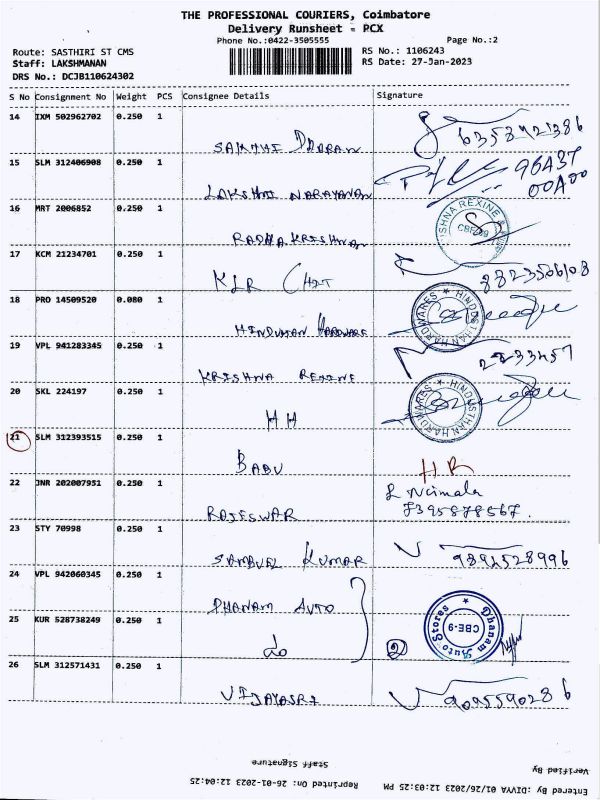 THE PROFESSIONAL COURIERS, Coimbatore
Delivery Runsheet = PCX
Phone No.:0422-3505555 Page No.:2
Route: SASTHIRI ST CMS RS No.: 1106243
Staff: LAKSHMANAN RS Date: 27-Jan-2023
DRS No.: DCJB110624302
S No Consignment No Weight PCS Consignee Details Signature
14 IXM 502962702 0.250 1
15 SLM 312406908 0.250 1
LAKSHMI NARAYANAN
16 MRT 2006852 0.250 1
RADHA KRISHNAN
CBE-9
17 KCM 21234701 0.250 1
KLR
18 PRO 14509520 0.080 1
HINDUSTHAN HARDWARES
HINDUSTHAN HARDWARE
19 VPL 941283345 1
KRISHNA REXINE 2233457
20 SKL 224197 0.250 1
HH
HINDUSTHAN HARDWARES
21 SLM 312393515 0.250 1
BABU HR
22 JNR 202007951 0.250 1
RAJESWAR 7395878567.
23 STY 70998 0.250 1
SAMBUEL KUMAR 9894528996
24 VPL 942060345 0.250 1
DHANAM AUTO
Dhanam Auto Stores CBE-9
25 KUR 528738249 0.250 1
do 2
26 SLM 312571431 0.250 1
VIJAYASRI 9095590286
Staff Signature
Verified By
Reprinted On: 26-01-2023 12:04:25
Entered By :DIVYA 01/26/2023 12:03:12 PM